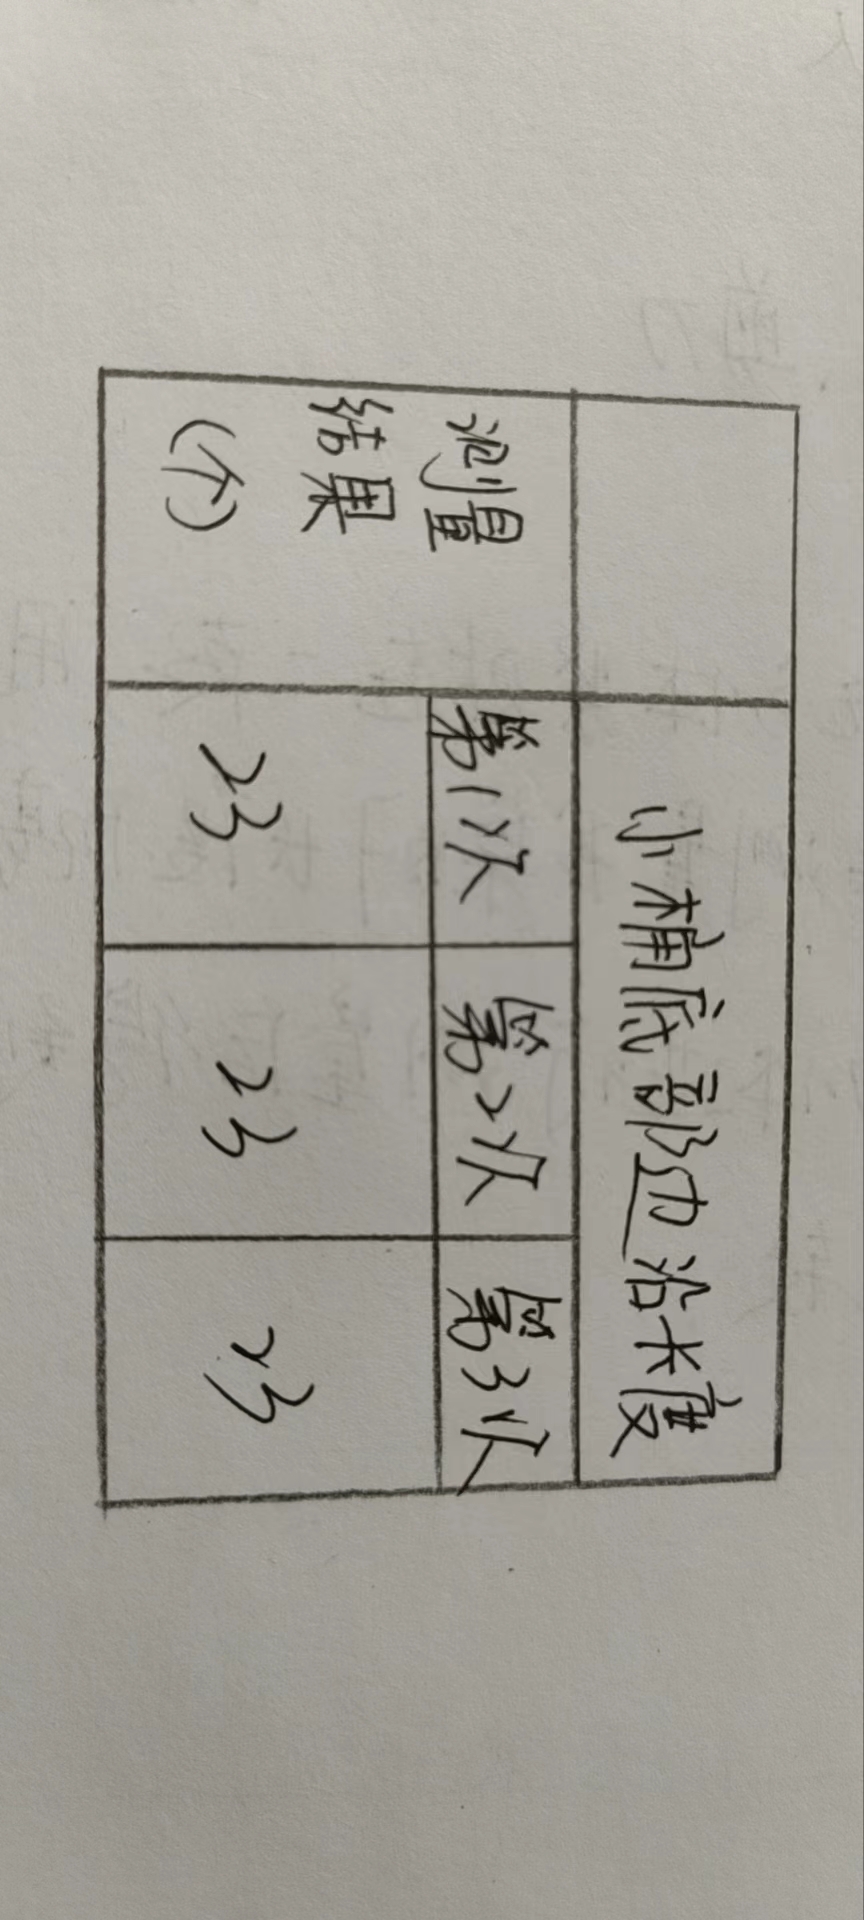 小桶底部边沿长度
测量
结果
(个)
第1次 第2次 第3次
23 23 23